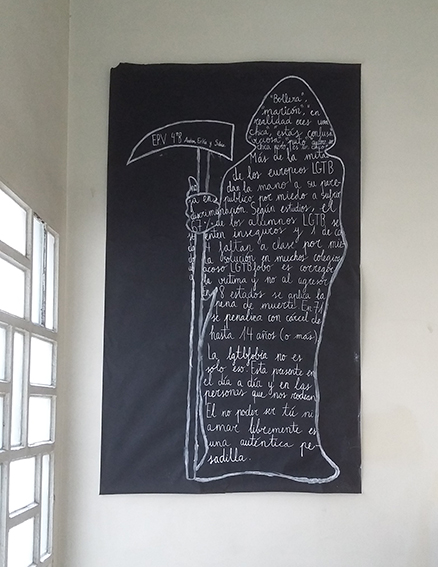 EPV 4ºB Ainhoa, Erika y Salma
"Bollera",
"maricón", en
realidad eres una
chica", "estás confusa
viciosa",
chica pero
Más de la mitad
de los europeos LGTB
dar la mano a su pare-
en público por miedo a sufrir
discriminación. Según estudios, el
% de los alumnos LGTB se
sienten inseguros y 1 de ca-
4 faltan a clase por mie-
solución en muchos colegios
acoso LGTBfobo es corregir
la víctima y no al agresor
En 8 estados se aplica la
pena de muerte. En 71
se penaliza con cárcel de
hasta 14 años (o más)
La lgtbfobia no es
solo eso. Esta presente en
el día a día y en las
personas que nos rodean
El no poder ser tú ni
amar libremente es
una auténtica pe-
sadilla.